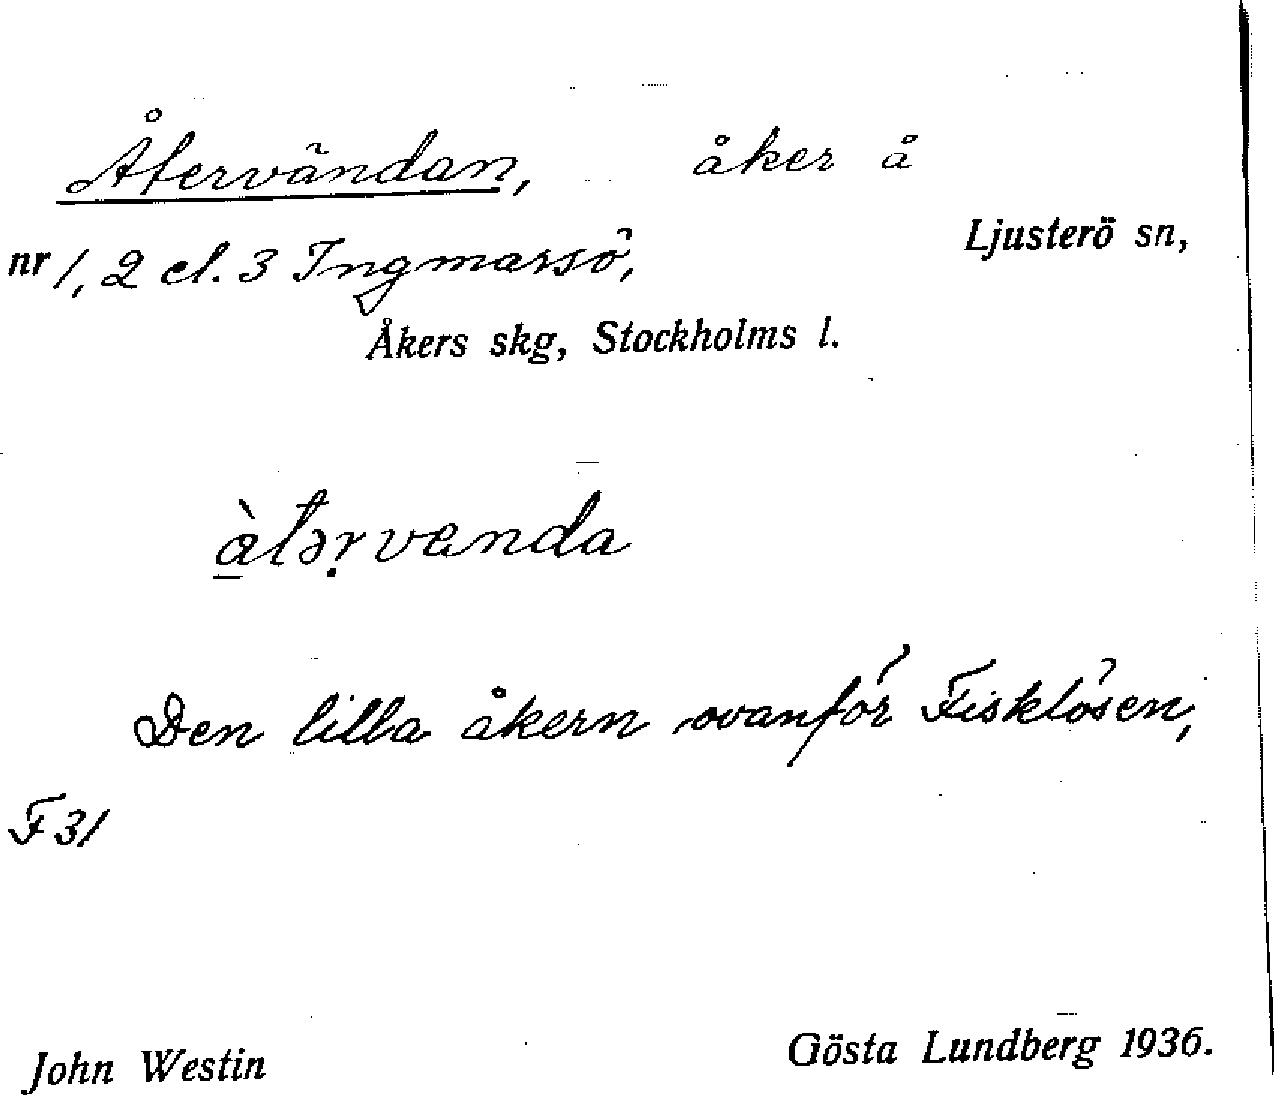 Återvändan, åker å
Ljusterö sn,
nr 1, 2 el. 3 Ingmarsö,
Åkers skg, Stockholms l.
å̱̀tər̥vɐnda
Den lilla åkern ovanför Fisklösen,
F 31
John Westin
Gösta Lundberg 1936.